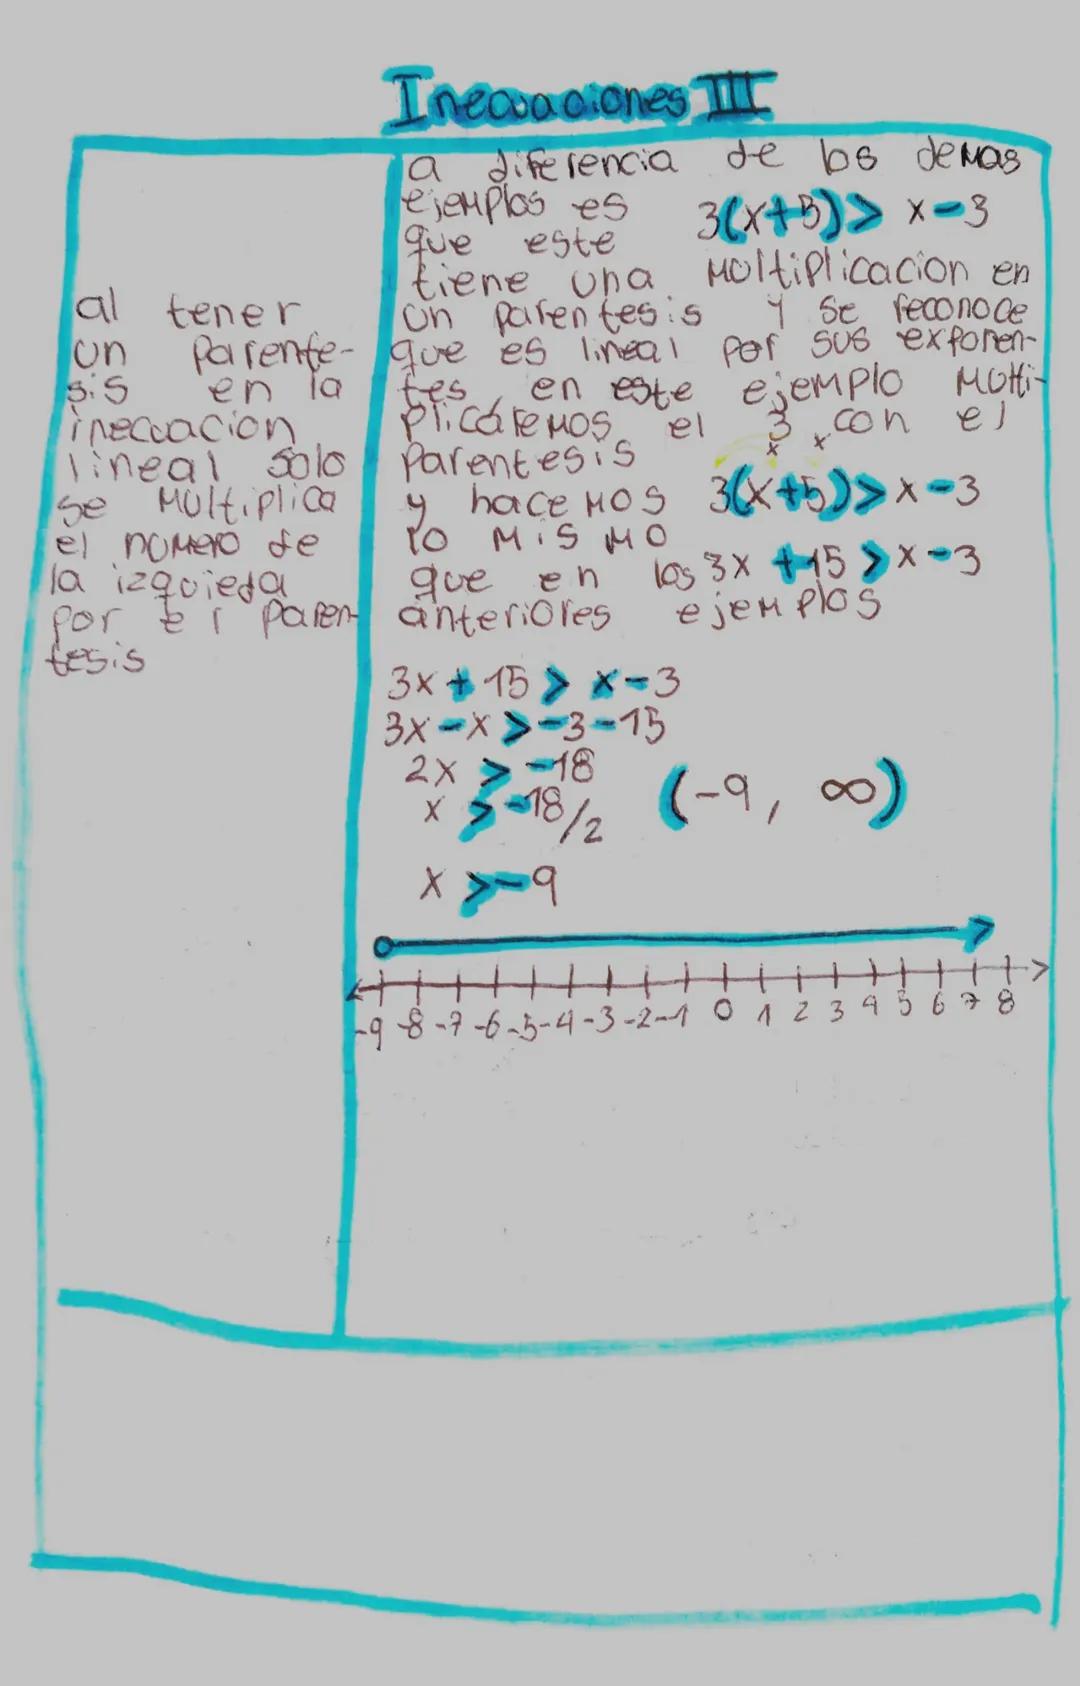 Inecuaciones III
al tener
un parente-
sis en la
inecuacion
lineal solo
se multiplica
el numero de
la izquieda
por el paren-
tesis
a diferencia de los demas
ejemplos es 3(x+5)> x-3
que este
tiene una multiplicacion en
un parentesis y se reconoce
que es lineal por sus exponen-
tes, en este ejemplo multi-
plicáremos el 3 con el
parentesis
x x
y hacemos 3(x+5)> x-3
lo mismo
que en los 3x +15 > x-3
anteriores ejemplos
3x + 15 > x-3
3x-x >-3-15
2x > -18
x > -18/2 (-9, ∞)
x >-9
-9 -8 -7 -6 -5 -4 -3 -2 -1 0 1 2 3 4 5 6 7 8